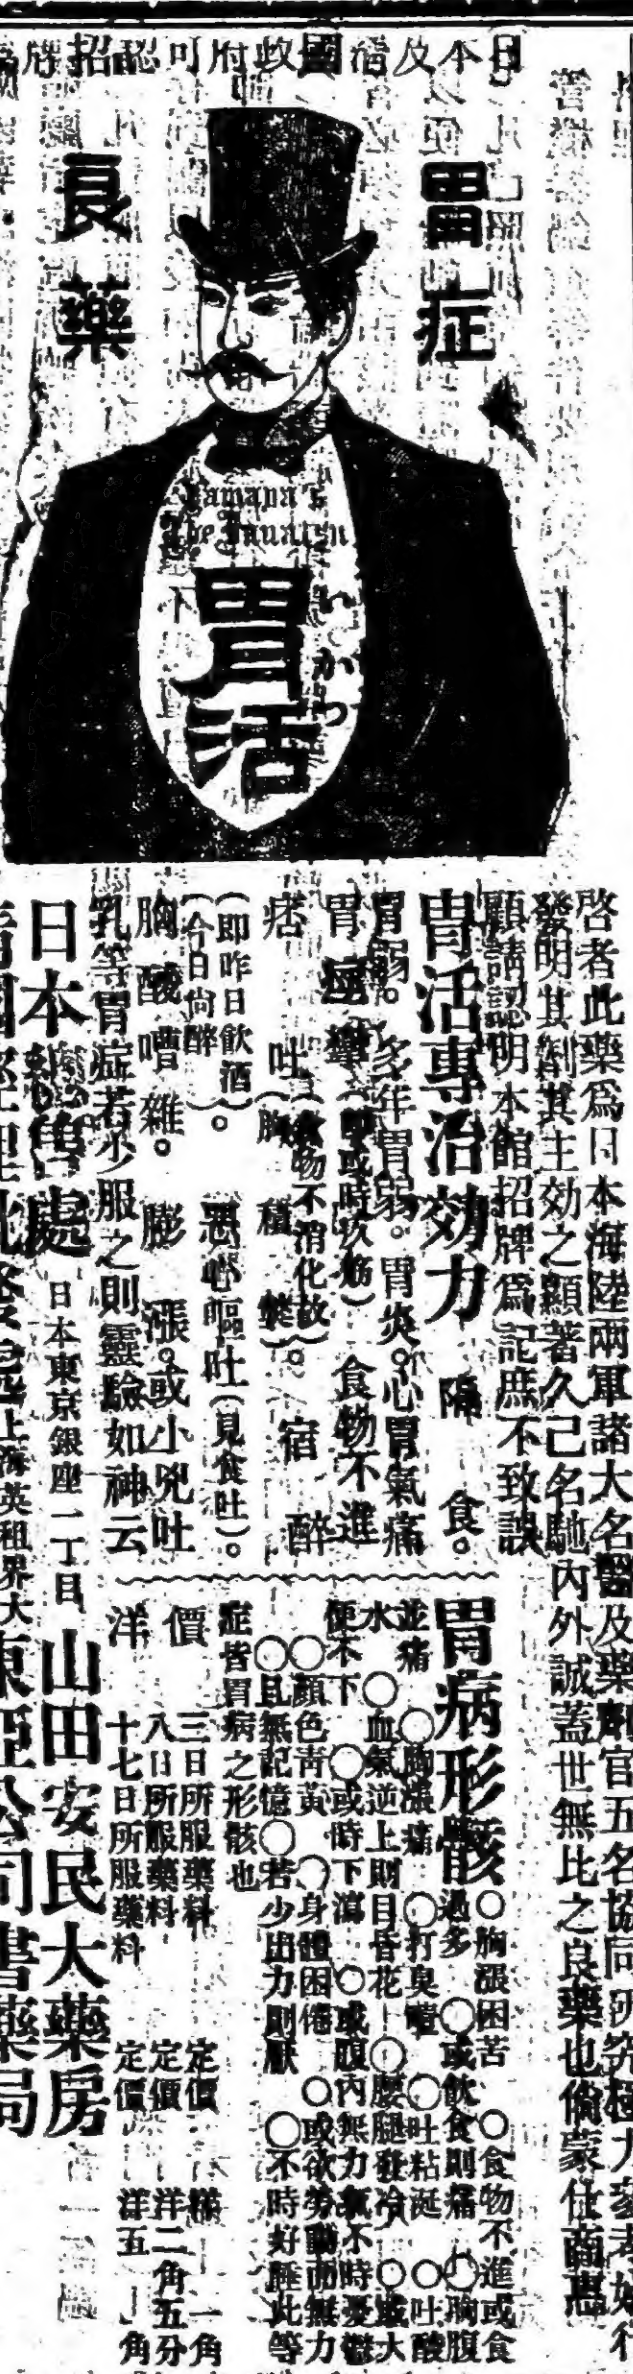 日本及清國政府可認招牌
胃症
良藥
胃活
いかつ
啓者此藥爲日本海陸兩軍諸大名醫及藥劑官五名協同研究極力
發明其劑其主効之顯著久已名馳內外誠蓋世無比之良藥也倘蒙仕商惠
顧請認明本館招牌爲記庶不致誤
胃活專治効力 隔食。
胃弱。多年胃弱。胃炎。心胃氣痛
胃痙攣 食物不進
痞 吐(食物不消化故)。宿醉
(即昨日飲酒
今日尙醉)。惡心嘔吐(見食吐)。
胸酸嘈雜。膨漲。或小兒吐
乳等胃症若少服之則靈驗如神云
胃病形骸 ○胸漲困苦 ○食物不進或食
過多 ○或飲食則痛 ○胸腹
並痛 ○胸漲痛 ○打臭噎 ○吐粘涎 ○吐酸
水 ○血氣逆上則目昏花 ○腰腿發冷 ○或大
便不下 ○或時下瀉 ○或腹內無力氣不時憂鬱
○顏色靑黃 ○身體困倦 ○或欲勞動而無力
○且無記憶 ○若少出力則厭 ○不時好睡此等
症皆胃病之形骸也
價 三日所服藥料 定價 洋一角
八日所服藥料 定價 洋二角五分
洋 十七日所服藥料 定價 洋五角
日本 處 日本東京銀座二丁目 山田安民大藥房
上海英租界大 東亞公司書藥局